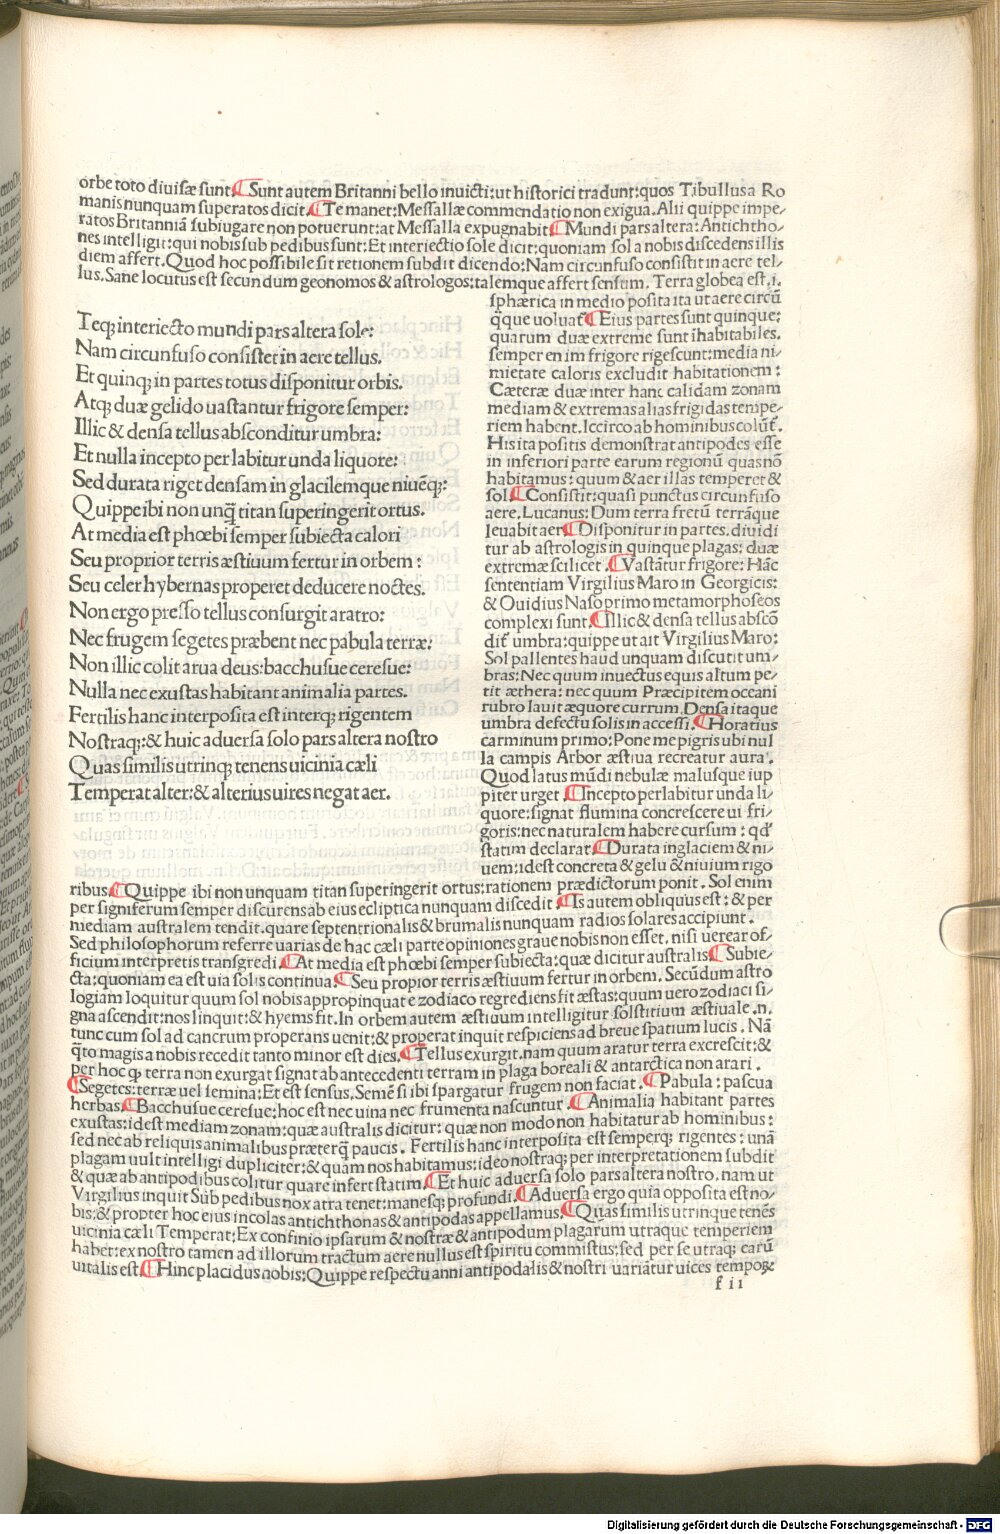 orbe toto diuisæ sunt. ¶ Sunt autem Britanni bello inuicti: ut historici tradunt: quos Tibullus a Ro
manis nunquam superatos dicit. ¶ Te manet: Messallæ commendatio non exigua. Alii quippe impe/
ratos Britanniā subiugare non potuerunt: at Messalla expugnabit ¶ Mundi pars altera: Antichtho/
nes intelligit: qui nobis sub pedibus sunt: Et interiectio sole dicit: quoniam sol a nobis discedens illis
diem affert. Quod hoc possibile sit retionem subdit dicendo: Nam circunfuso consistit in aere tel/
lus. Sane locutus est secundum geonomos & astrologos: talemque affert sensum. Terra globea est .i.
sphærica in medio posita ita ut aere circū
q̄que uoluat̄ ¶ Eius partes sunt quinque:
quarum duæ extreme sunt īhabitabiles.
semper en im frigore rigescunt: media ni/
mietate caloris excludit habitationem:
Cæteræ duæ inter hanc calidam zonam
mediam & extremas alias frigidas tempe/
riem habent. Iccirco ab hominibus colūt̄.
His ita positis demonstrat antipodes esse
in inferiori parte earum regionū quas nō
habitamus: quum & aer illas temperet &
sol. ¶ Consistit: quasi punctus circunfuso
aere. Lucanus: Dum terra fretū terrāque
leuabit aer ¶ Disponitur in partes. diuidi
tur ab astrologis in quinque plagas: duæ
extremæ scilicet. ¶ Vastātur frigore: Hāc
sententiam Virgilius Maro in Georgicis:
& Ouidius Naso primo metamorphoseos
complexi sunt. ¶ Illic & densa tellus abscō
dit̄ umbra: quippe ut ait Virgilius Maro:
Sol pallentes haud unquam discutit um/
bras: Nec quum inuectus equis altum pe/
tit æthera: nec quum Præcipitem oceani
rubro lauit æquore currum. Densa itaque
umbra defectu solis in accessi. ¶ Horatius
carminum primo: Pone me pigris ubi nul
la campis Arbor æstiua recreatur aura.
Quod latus mūdi nebulæ malusque iup
piter urget. ¶ Incepto perlabitur unda li/
quore: signat flumina concrescere ui fri/
goris: nec naturalem habere cursum: qd̄
statim declarat ¶ Durata in glaciem & ni/
uem: id est concreta & gelu & niuium rigo
Teq; interiecto mundi pars altera sole:
Nam circunfuso consistet in aere tellus.
Et quinq; in partes totus disponitur orbis.
Atq; duæ gelido uastantur frigore semper:
Illic & densa tellus absconditur umbra:
Et nulla incepto per labitur unda liquore:
Sed durata riget densam in glacilemque niuēq;:
Quippe ibi non unq̄ titan superingerit ortus.
At media est phœbi semper subiecta calori
Seu proprior terris æstiuum fertur in orbem:
Seu celer hybernas properet deducere noctes.
Non ergo presso tellus consurgit aratro:
Nec frugem segetes præbent nec pabula terræ:
Non illic colit arua deus: bacchusue ceresue:
Nulla nec exustas habitant animalia partes.
Fertilis hanc interposita est interq; rigentem
Nostraq;: & huic aduersa solo pars altera nostro
Quas similis utrinq; tenens uicinia cæli
Temperat alter: & alterius uires negat aer.
ribus. ¶ Quippe ibi non unquam titan superingerit ortus: rationem prædictorum ponit. Sol enim
per signiferum semper discurens ab eius ecliptica nunquam discedit. ¶ Is autem obliquus est: & per
mediam australem tendit. quare septentrionalis & brumalis nunquam radios solares accipiunt.
Sed philosophorum referre uarias de hac cæli parte opiniones graue nobis non esset. nisi uerear of/
ficium interpretis transgredi. ¶ At media est phœbi semper subiecta: quæ dicitur australis ¶ Subie/
cta: quoniam ea est uia solis continua. ¶ Seu propior terris æstiuum fertur in orbem. Secūdum astro
logiam loquitur quum sol nobis appropinquat e zodiaco regrediens fit æstas: quum uero zodiaci si/
gna ascendit: nos linquit: & hyems fit. In orbem autem æstiuum intelligitur solstitium æstiuale .n.
tunc cum sol ad cancrum properans uenit: & properat inquit respiciens ad breue spatium lucis. Nā
q̄to magis a nobis recedit tanto minor est dies. ¶ Tellus exurgit. nam quum aratur terra excrescit: &
per hoc ꝙ terra non exurgat signat ab antecedenti terram in plaga boreali & antarctica non arari.
¶ Segetes: terræ uel semina: Et est sensus. Semē si ibi spargatur frugem non faciat. ¶ Pabula: pascua
herbas: ¶ Bacchusue ceresue: hoc est nec uina nec frumenta nascuntur. ¶ Animalia habitant partes
exustas: id est mediam zonam: quæ australis dicitur: quæ non modo non habitatur ab hominibus:
sed nec ab reliquis animalibus præterq̄ paucis. Fertilis hanc interposita est semperq; rigentes: unā
plagam uult intelligi dupliciter: & quam nos habitamus: ideo nostraq; per interpretationem subdit
& quæ ab antipodibus colitur quare infert statim. ¶ Et huic aduersa solo pars altera nostro. nam ut
Virgilius inquit Sub pedibus nox atra tenet: manesq; profundi. ¶ Aduersa ergo quia opposita est no/
bis: & propter hoc eius incolas antichthonas & antipodas appellamus. ¶ Quas similis utrinque tenēs
uicinia cæli Temperat: Ex confinio ipsarum & nostræ & antipodum plagarum utraque temperiem
habet: ex nostro tamen ad illorum tractum aere nullus est spiritu commistus: sed per se utraq; earū
uitalis est. ¶ Hinc placidus nobis: Quippe respectu anni antipodalis & nostri uariātur uices tempoꝝ
f ii
Digitalisierung gefördert durch die Deutsche Forschungsgemeinschaft - DFG